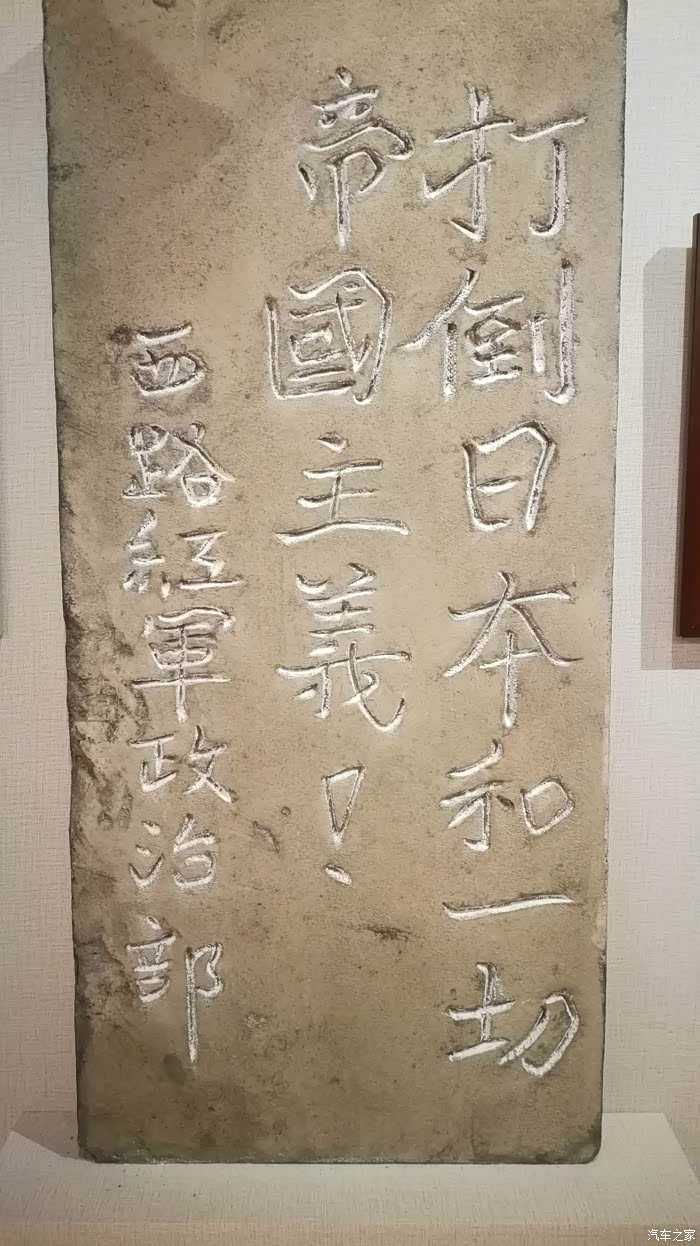 打倒日本和一切
帝國主義！
西路紅軍政治部
汽车之家